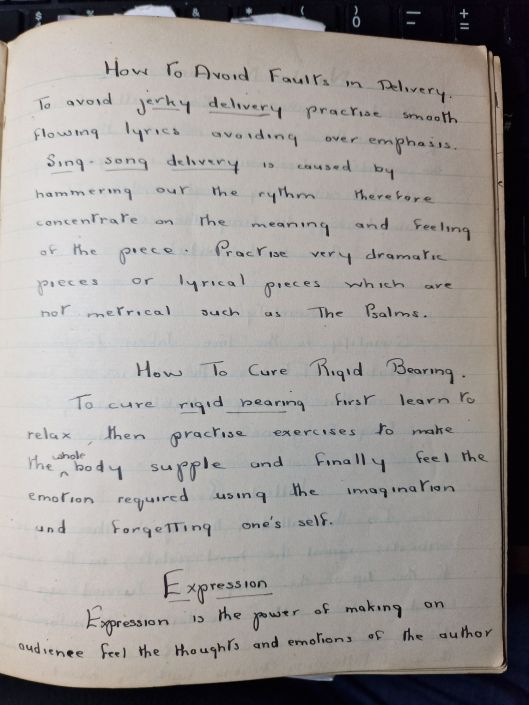 How To Avoid Faults in Delivery.
To avoid jerky delivery practise smooth
flowing lyrics avoiding over emphasis.
Sing-song delivery is caused by
hammering out the rythm therefore
concentrate on the meaning and feeling
of the piece. Practise very dramatic
pieces or lyrical pieces which are
not metrical such as The Psalms.
How To Cure Rigid Bearing.
To cure rigid bearing first learn to
relax, then practise exercises to make
the whole body supple and finally feel the
emotion required using the imagination
and forgetting one's self.
Expression
Expression is the power of making an
audience feel the thoughts and emotions of the author